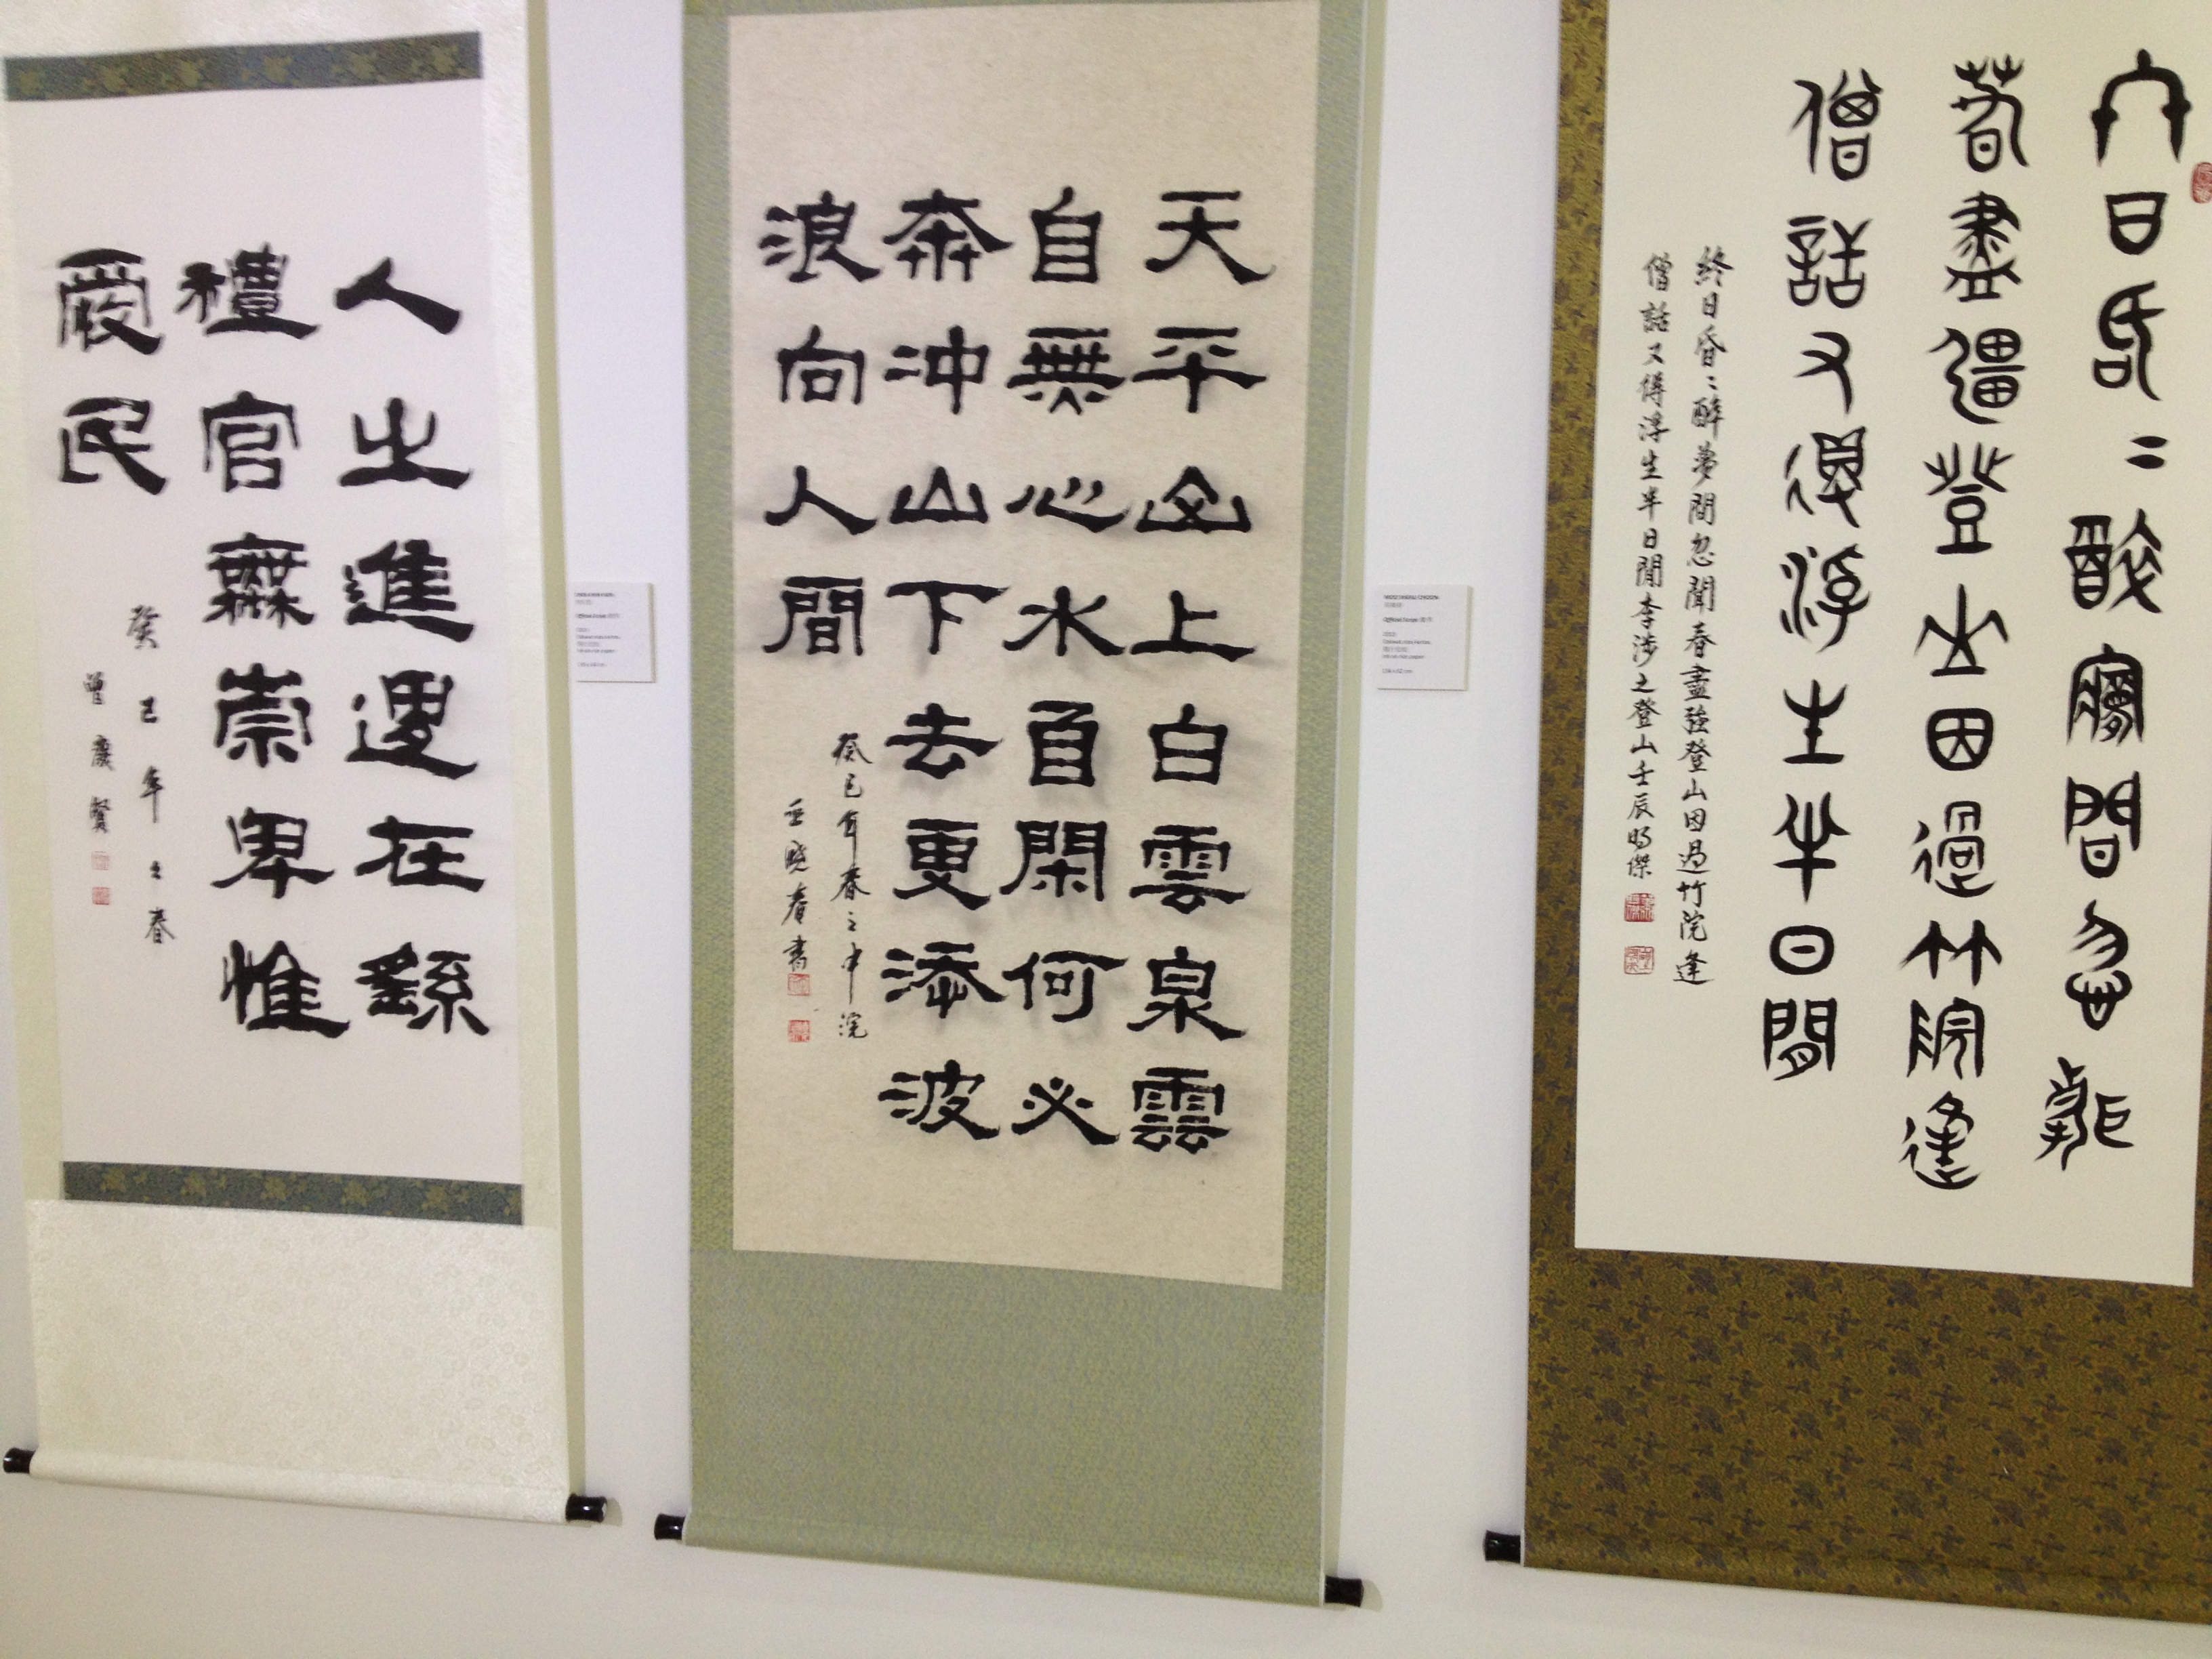 終日昏〻醉夢間忽聞
春盡強登山因過竹院逢
僧話又得浮生半日閒
終日昏〻醉夢間忽聞春盡強登山因過竹院逢
僧話又得浮生半日閒李涉之登山壬辰明傑
天平山上白雲泉雲
自無心水自閑何必
奔沖山下去更添波
浪向人間
癸巳年春之中浣
曉春書
人之進退在繇
禮官無崇卑惟
愛民
癸巳年之春